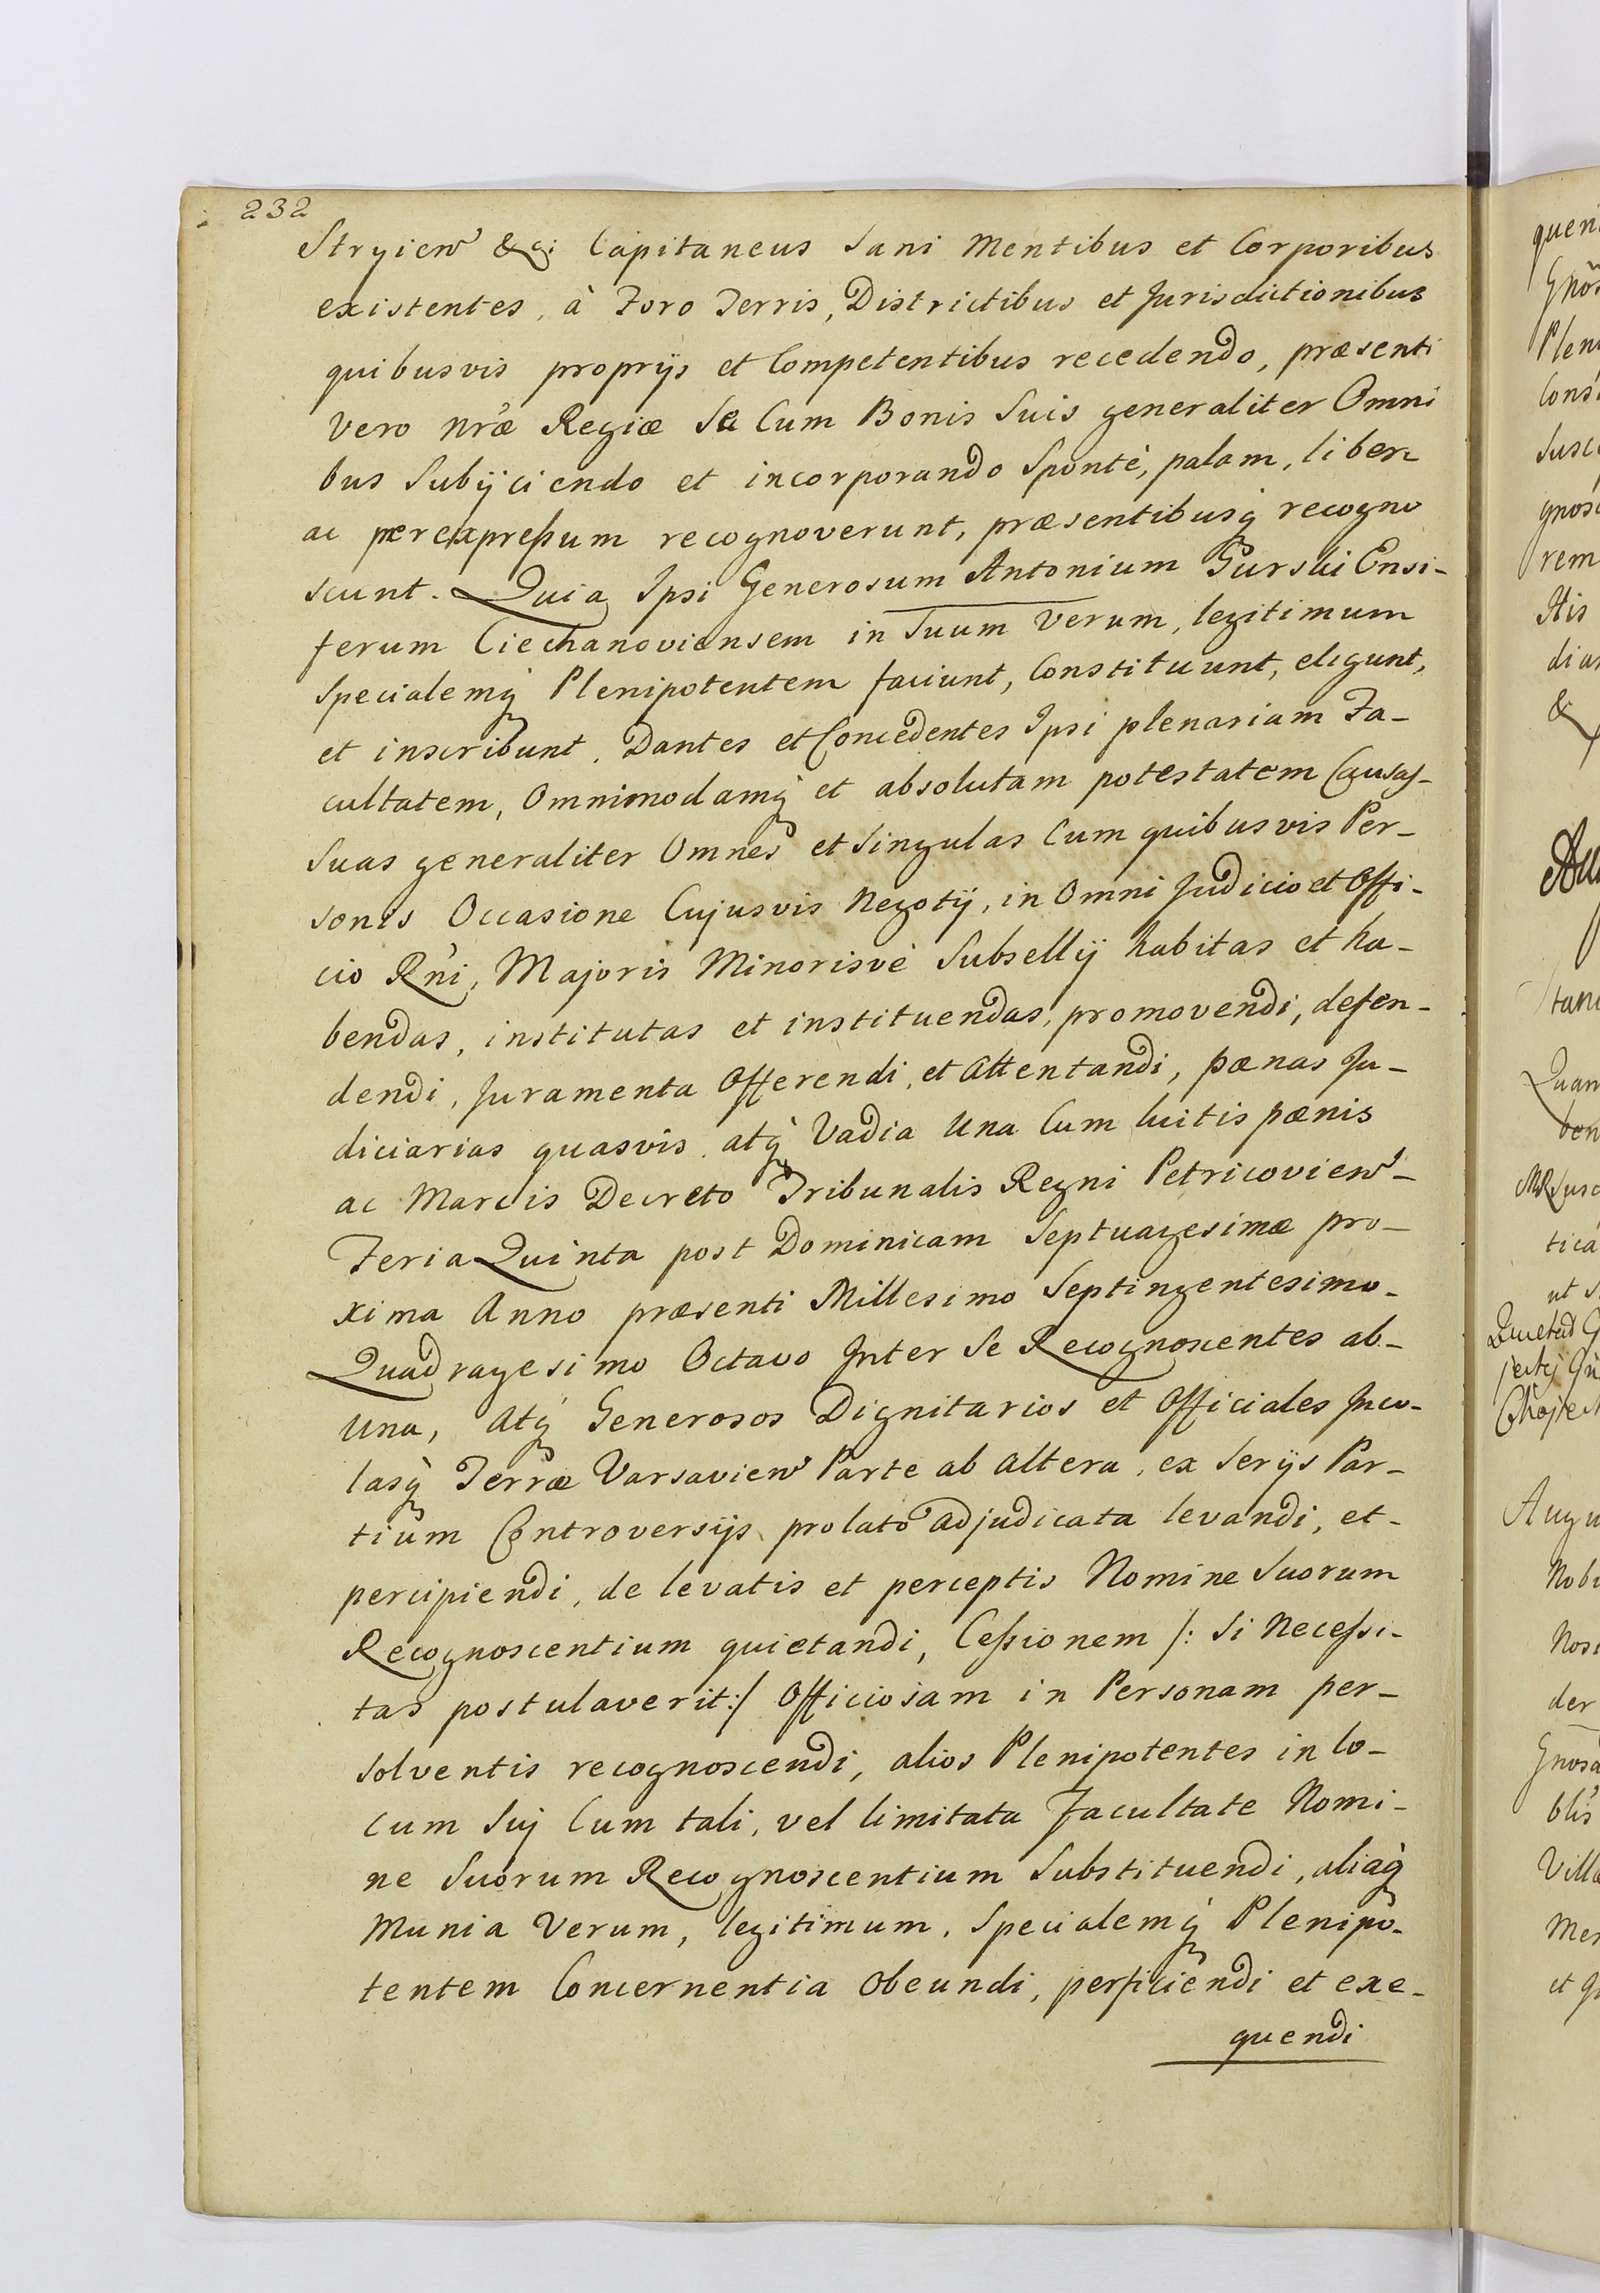 232
Stryien &c: Capitaneus Sani Mentibus et Corporibus
existentes, à Foro Terris, Districtibus et Jurisdictionibus
quibusvis proprijs et Competentibus recedendo, præsenti
vero nr̃æ Regiæ Se Cum Bonis Suis generaliter Omni
bus Subijciendo et incorporando Spontè, palam, liberè
ac per expreſsum recognoverunt, præsentibusq̀ recogno
scunt. Quia Ipsi Generosum Antonium Gurski Ensi-
ferum Ciechanoviensem in Suum Verum, legitimum
Specialemq̀ Plenipotentem faciunt, Constituunt, eligunt,
et inscribunt. Dantes et Concedentes Ipsi plenariam Fa-
cultatem, Omnimodamq̀ et absolutam potestatem Causas-
Suas generaliter Omnes et Singulas Cum quibusvis Per-
sonis Occasione Cujusvis Negotij, in Omni Judicio et Offi-
cio Rñi, Majoris Minorisvè Subsellij habitas et ha-
bendas, institutas et instituendas, promovendi, defen-
dendi, Juramenta Offerendi, et Attentandi, pænas Ju-
diciarias quasvis, atq̀ Vadia Una Cum luitis pænis
ac Marcis Decreto Tribunalis Regni Petricovien-
Feria Quinta post Dominicam Septuagesimæ pro-
xima Anno præsenti Millesimo Septingentesimo-
Quadragesimo Octavo Inter Se Recognoscentes ab-
una, atq̀ Generosos Dignitarios et Officiales Inco-
lasq̀ Terræ Varsavien Parte ab altera, ex Serijs Par-
tium Controversijs prolato adjudicata levandi, et-
percipiendi, de levatis et perceptis Nomine Suorum
Recognoscentium quietandi, Ceſsionem /: Si Neceſsi-
tas postulaverit:/ Officiosam in Personam per-
solventis recognoscendi, alios Plenipotentes in lo-
cum Suj Cum tali, vel limitata Facultate Nomi-
ne Suorum Recognoscentium Substituendi, aliaq̀
Munia Verum, legitimum, Specialemq̀ Plenipo-
tentem Concernentia Obeundi, perficiendi et exe-
quendi